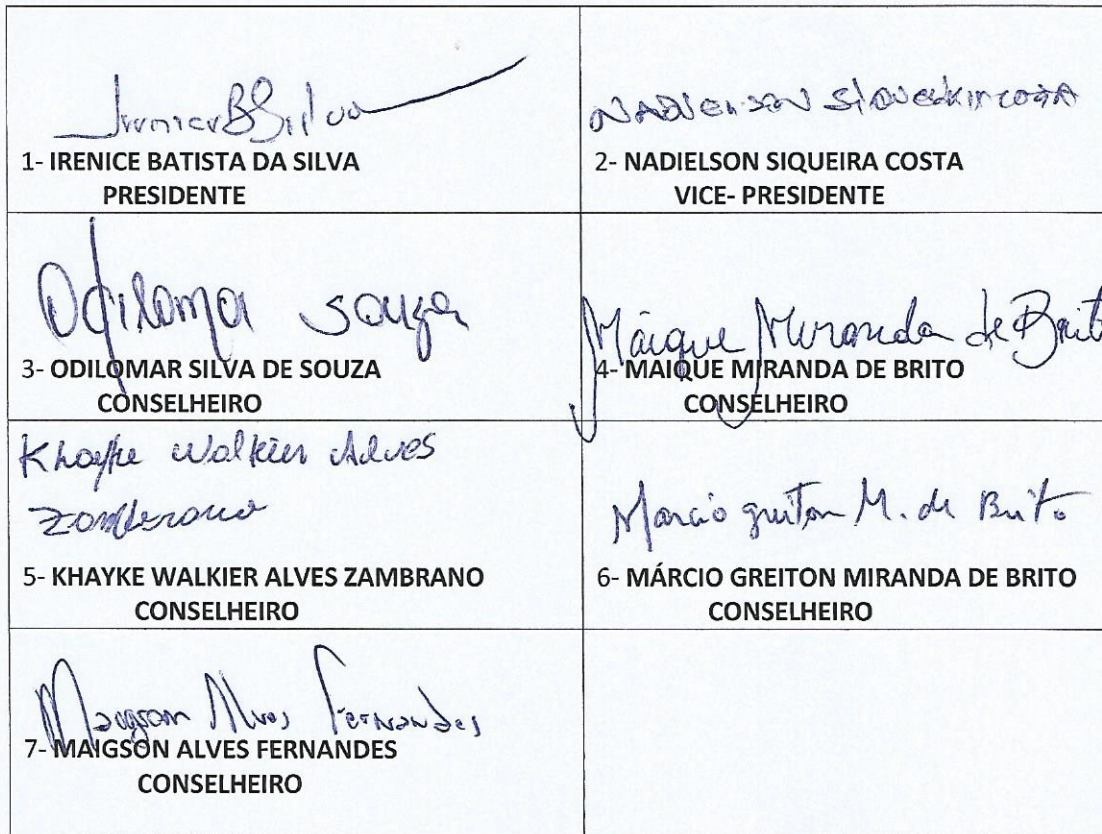 Irenice B Silva
1- IRENICE BATISTA DA SILVA
PRESIDENTE
2- NADIELSON SIQUEIRA COSTA
VICE- PRESIDENTE
Odiloma souza
3- ODILOMAR SILVA DE SOUZA
CONSELHEIRO
Máique Miranda de Brito
4- MAIQUE MIRANDA DE BRITO
CONSELHEIRO
Khayke Walkier Alves
Zambrano
5- KHAYKE WALKIER ALVES ZAMBRANO
CONSELHEIRO
Marcio greiton M. de Brito
6- MÁRCIO GREITON MIRANDA DE BRITO
CONSELHEIRO
Maigson Alves Fernandes
7- MAIGSON ALVES FERNANDES
CONSELHEIRO